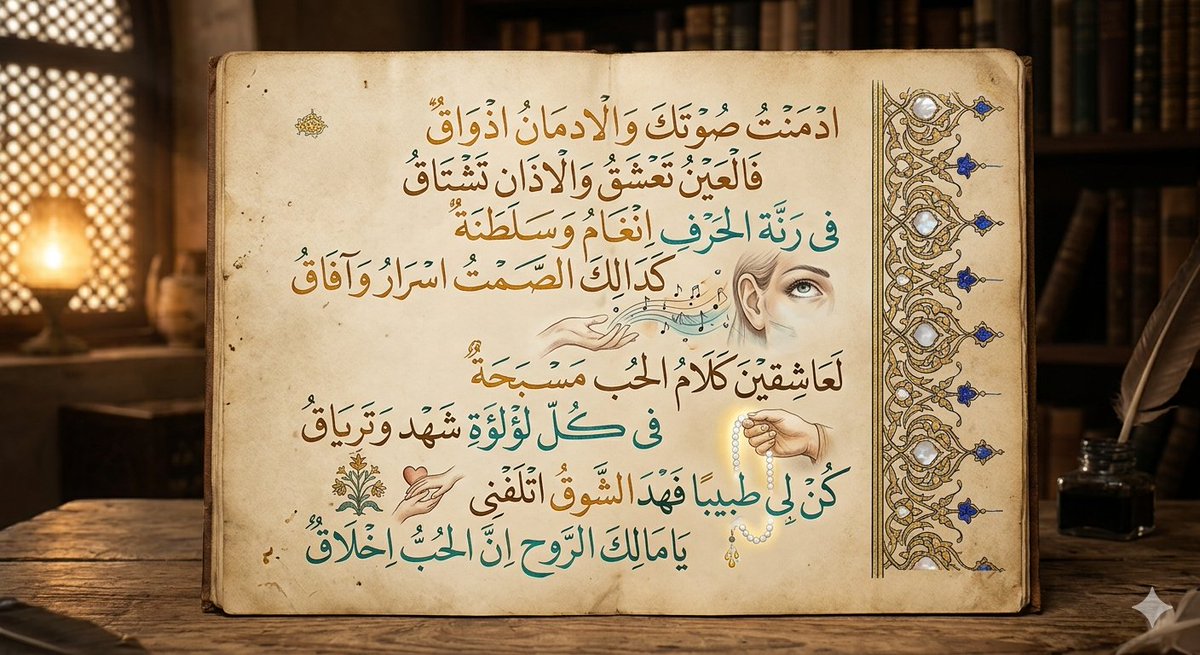 ادْمَنْتُ صُوْتَكَ وَالْادمَانُ اذْوَاقٌ
فَالْعَيْنُ تَعْشَقُ وَالْاذَان تَشْتَاقُ
فى رَنَّة الحَرْفِ اِنْغَامُ وَسَلَطَنَةٌ
كَدَالِكَ الصَّمْتُ اسْرَارُ وَآفَاقُ
لَعَاشِقيْنَ كَلَامُ الحُب مَسْبَحَةٌ
فى كُلّ لؤْلؤَةِ شَهْد وَتَريَاقُ
كُنْ لِى طبيبًا فَهْدَ الشَّوقُ اتْلَفْنى
يَا مَالِكَ الرَّوح اِنَّ الحُبُّ اِخْلَاقٌ